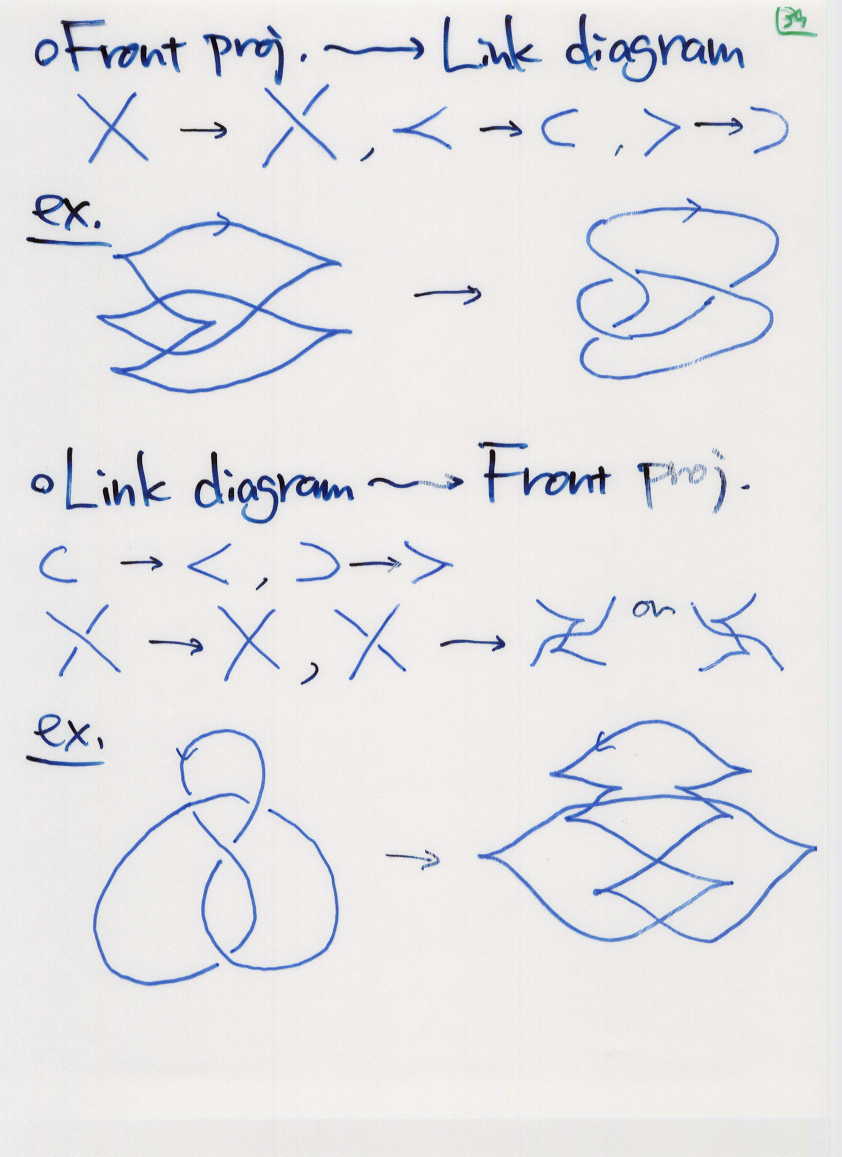 39
Front proj. → Link diagram
→ , → , →
ex.
→
Link diagram → Front proj.
→ , →
→ , → or
ex.
→